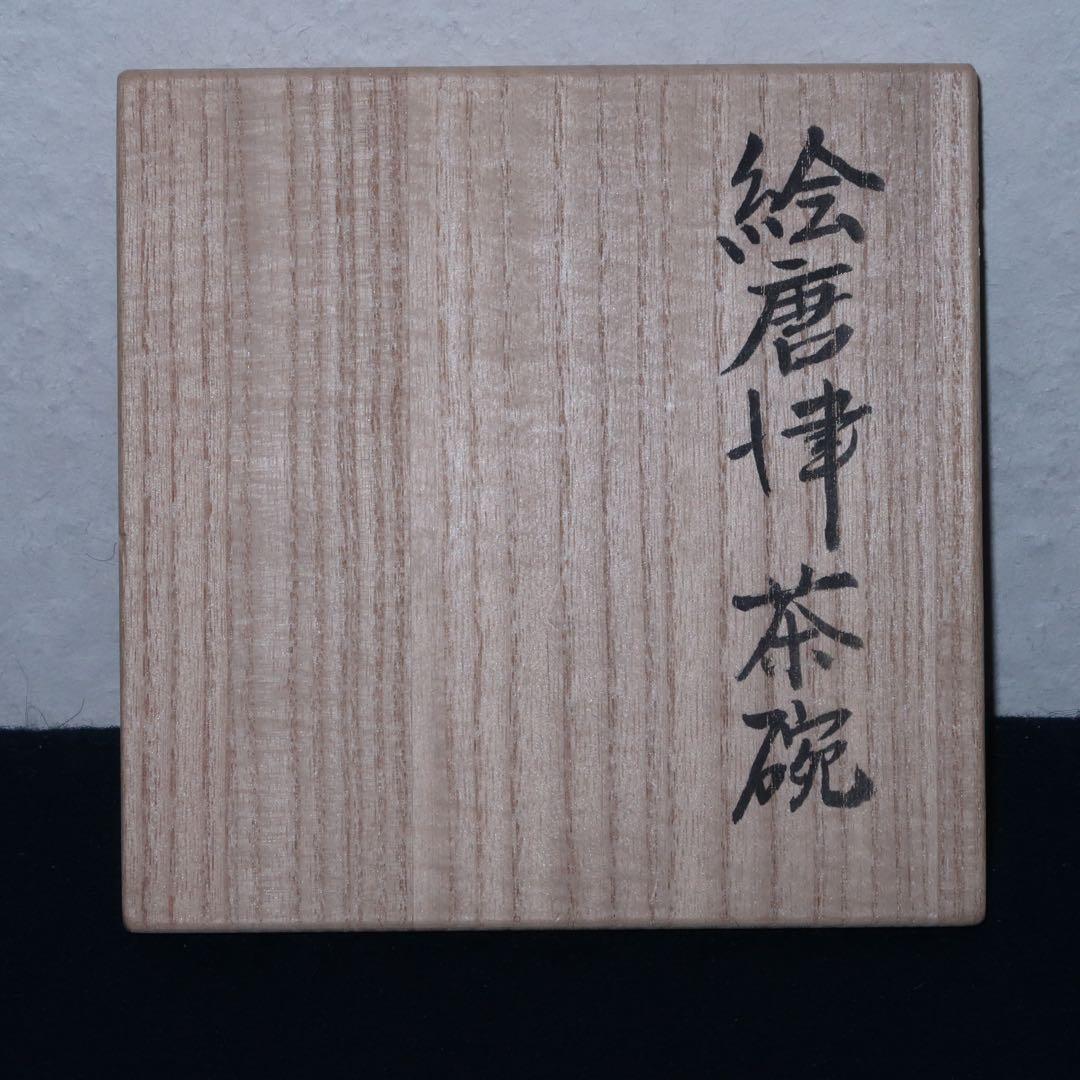 絵唐津茶碗